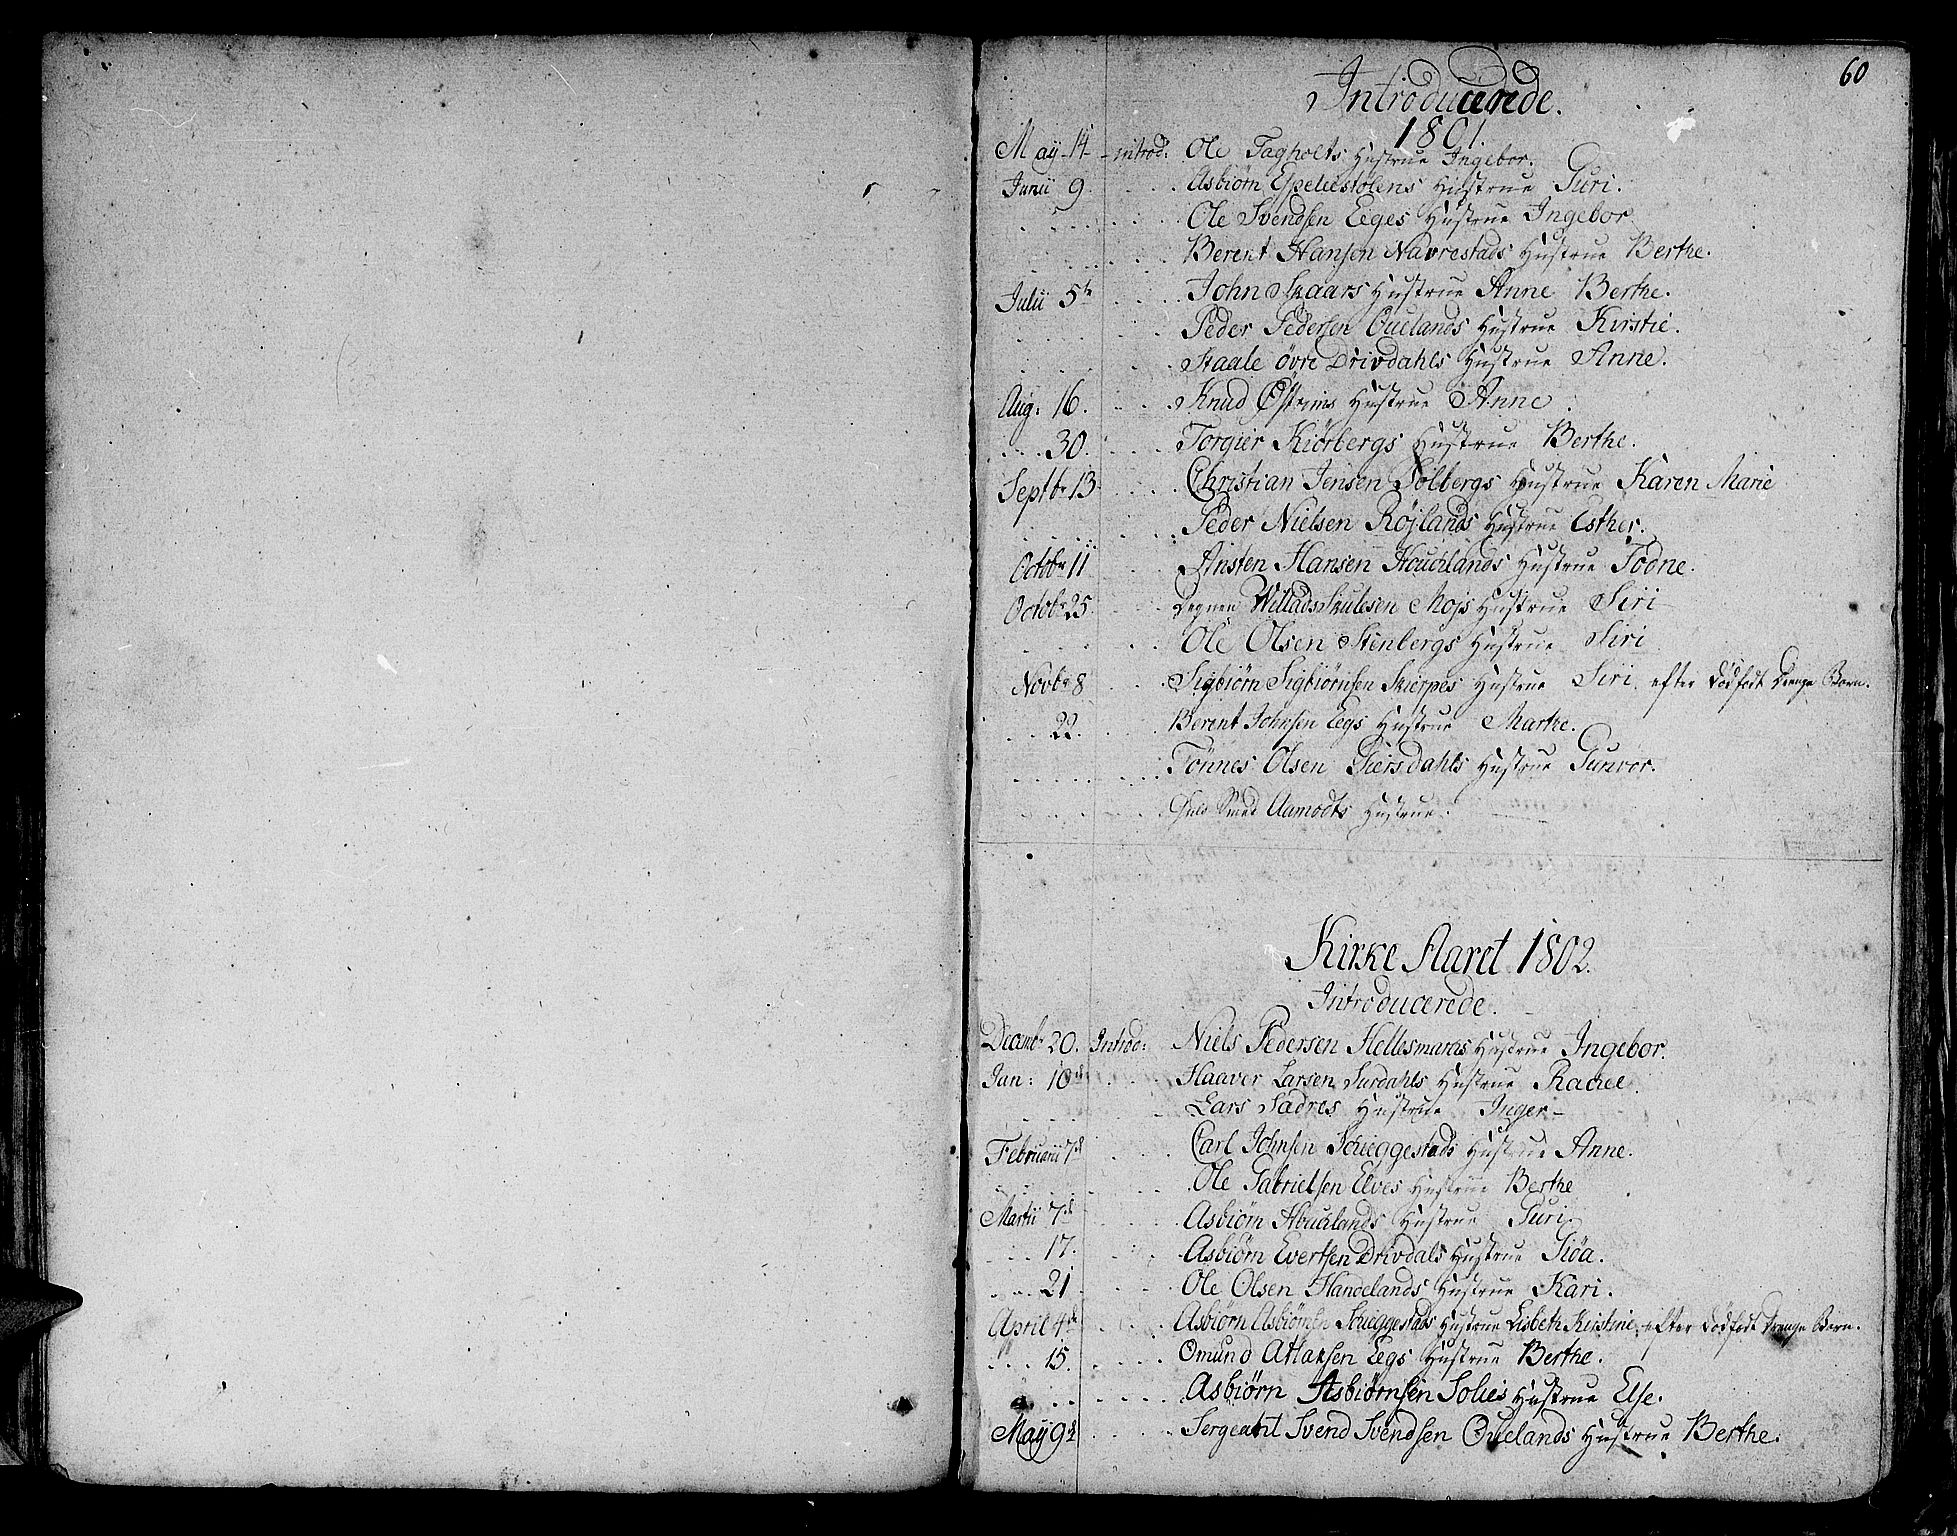 60
Introducerede.
1801.
May 14 introd: Ole Fagholts Hustrue Ingebor.
Junii 9 Asbiørn Hustrue Guri.
Ole Svendsen Eeges Hustrue Ingebor
Berent Hansen Navrestads Hustrue Berthe.
Julii 5te John Skaars Hustrue Anne Berthe.
Peder Pedersen Ouelands Hustrue Kirstie.
Staale øvre Drivdahls Hustrue Anne.
Aug: 16. Knud Hustrue Anne.
30. Torgier Kiørbergs Hustrue Berthe.
Septbr 13 Christian Jensen Solbergs Hustrue Karen Marie
Peder Nielsen Røjlands Hustrue Esther.
Octobr 11 Ansten Hansen Houchlands Hustrue Todne.
Octobr 25 Degnen Willads Skulesen Mojs Hustrue Siri
Ole Olsen Stenbergs Hustrue Siri
Novbr 8 Sigbiørn Sigbiørnsen Skierpes Hustrue Siri efter dødfødt Drenge Barn.
22. Berent Johnsen Eegs Hustrue Marthe.
Tønnes Olsen Hustrue Gunvor.
Smed Aamodts Hustrue.
Kirke Aaret 1802.
Introducerede.
Decembr 20. Introd: Niels Pedersen Hellesmarks Hustrue Ingebor.
Jan: 10de Haaver Larsen Surdahls Hustrue Rachel.
Lars Sadres Hustrue Inger
Februarii 7de Carl Johnsen Scheggestads Hustrue Anne.
Ole Gabrielsen Elves Hustrue Berthe
Martii 7de Asbiørn Houchlands Hustrue Guri
17. Asbiørn Evertsen Drivdals Hustrue Siøa.
21 Ole Olsen Handelands Hustrue Kari.
April 4de Asbiørn Asbiørnsen Scheggestads Hustrue Lisbeth Kirstine, efter dødfødt Drenge Barn.
15. Omund Atlaksen Eegs Hustrue Berthe.
Asbiørn Asbiørnsen Solies Hustrue Else.
Maji 9de Sergeant Svend Svendsen Ouelands Hustrue Berthe.